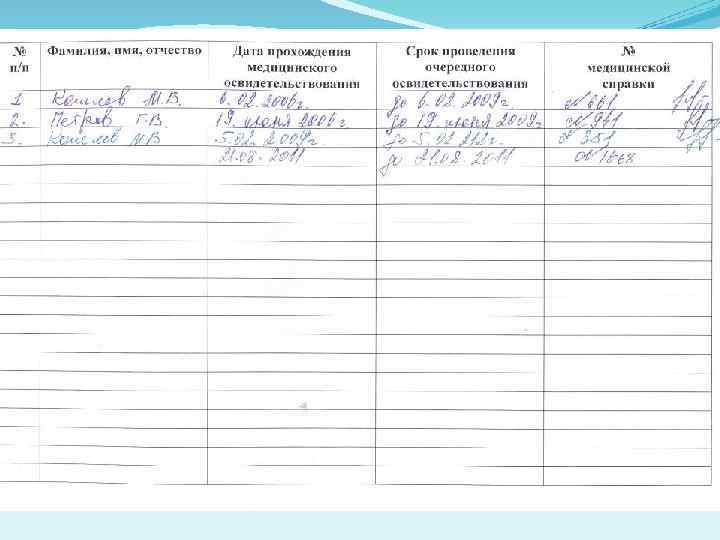 № п/п Фамилия, имя, отчество Дата прохождения медицинского освидетельствования Срок проведения очередного освидетельствования № медицинской справки
1 Кошлев М.В. 6.02.2006г. до 6.02.2009г. № 661
2. Петров Г.В 19 июня 2006г. до 19 июня 2009г. № 961
3. Кошелев МВ 5.02.2009г до 5.02 212г. № 351
21.08.2011 до 21.08.2011 №